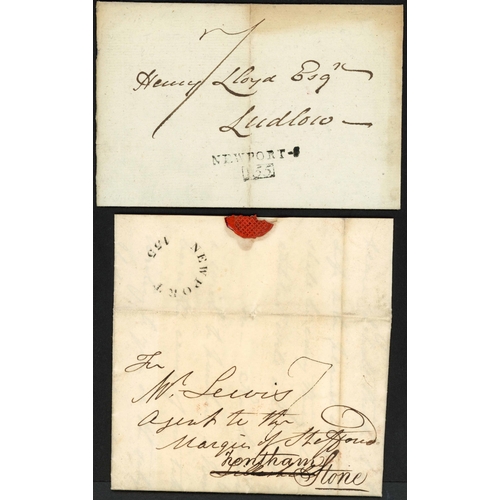 7
Henry Lloyd Esqr
Ludlow
NEWPORT-S
155
155 NEWPORT
For
Mr. Lewis 7
Agent to the
Marquis of Stafford
Trentham
Stone